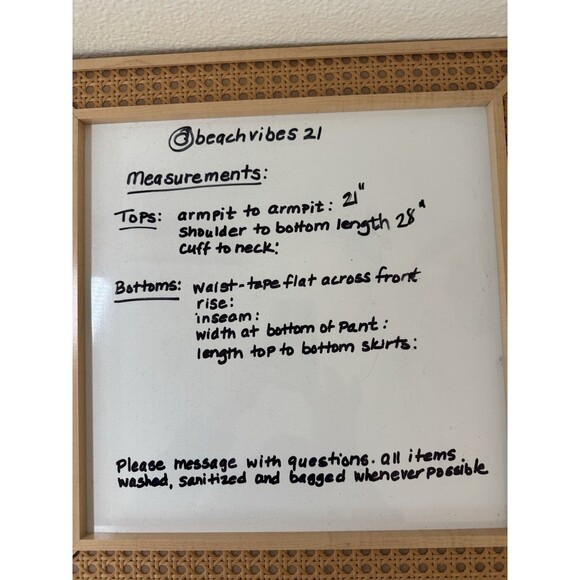 @beachvibes 21
Measurements:
Tops: armpit to armpit: 21"
shoulder to bottom length 28"
cuff to neck:
Bottoms: waist-tape flat across front
rise:
inseam:
width at bottom of pant:
length top to bottom skirts:
Please message with questions. all items.
washed, sanitized and bagged whenever possible